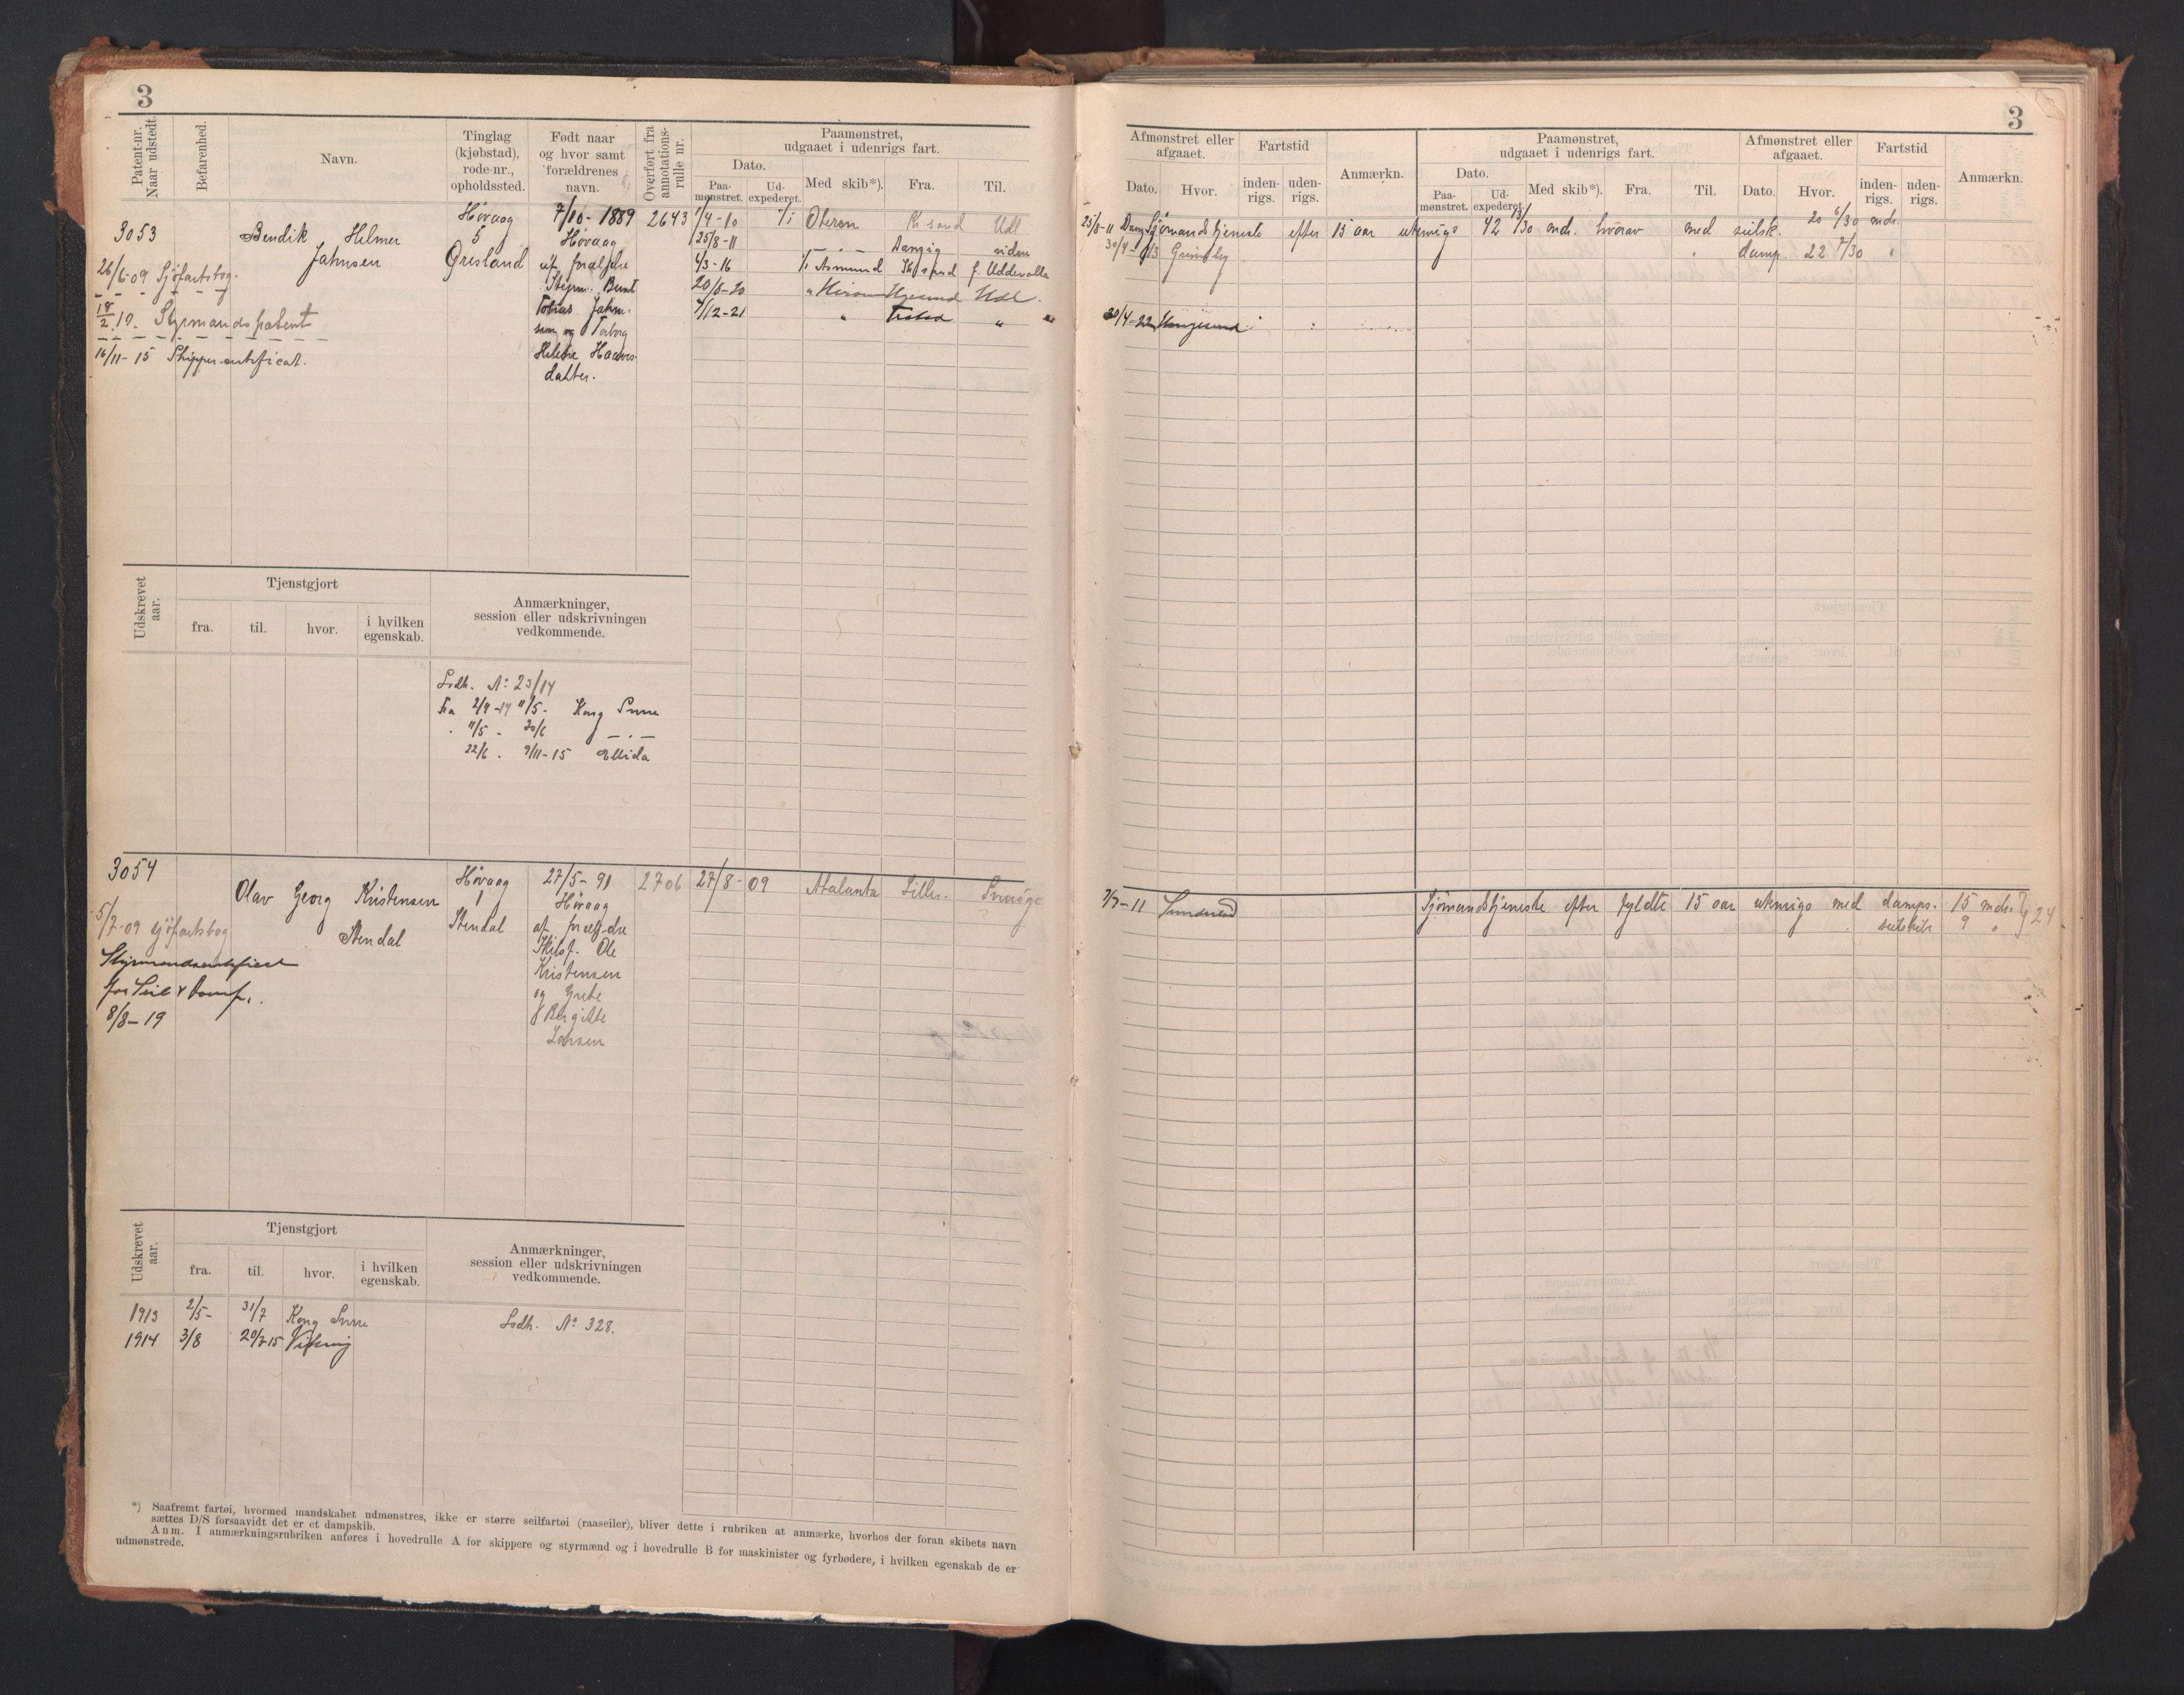 3
Patent-nr.
Naar udstedt.
Befarenhed.
Navn.
Tinglag
(kjøbstad),
rode-nr.,
opholdssted.
Født naar
og hvor samt
forældrenes
navn.
Overført fra
annotations-
rulle nr.
Paamønstret,
udgaaet i udenrigs fart.
Dato.
Paa-
mønstret.
Ud-
expederet.
Med skib*).
Fra.
Til.
3053
26/6-09 Sjöfartsbog.
18/2 19. Styrmandspatent
16/11-15 Skippercertificat.
Bendik Helmer
Jahnsen
Høvaag
5
Øresland
7/10-1889
Høvaag
af forældre
Styrm. Bent
Tobias Jahn-
sen og Torborg
Helene
datter.
2643
1/4-10 Oberon K sand Udl
25/8-11 — " — Danzig siden
4/3-16 Asmund K sand f. Uddevalla
20/8-20 " Udl.
7/12-21 " "
Udskrevet
aar.
Tjenstgjort
fra.
til.
hvor.
i hvilken
egenskab.
Anmærkninger,
session eller udskrivningen
vedkommende.
Lodh. No 23/14
Fra 2/4-14 11/5- Kong Sverre
11/5 - 20/6 — . —
22/6 . 9/11-15 Ellida
3054
5/7-09 sjöfartsbog
Styrmandscertificat
for Seil & Damp.
8/8-19
Olav Georg Kristensen
Stendal
Høvaag
1
Stendal
27/5-91
Høvaag
af foræl-dre
Skibsf. Ole
Kristensen
og Grete
Birgitte
Larsen
2706
27/8-09 Atalanta Lilles. Sverige
Udskrevet
aar.
Tjenstgjort
fra.
til.
hvor.
i hvilken
egenskab.
Anmærkninger,
session eller udskrivningen
vedkommende.
1913 2/5- 31/7 Kong Sverre
1914 3/8 20/7-15 Viking
Lodh. No 328.
*) Saafremt fartøi, hvormed mandskabet udmønstres, ikke er større seilfartøi (raaseiler), bliver dette i rubriken at anmærke, hvorhos der foran skibets navn
sættes D/S forsaavidt det er et dampskib.
Anm. I anmærkningsrubriken anføres i hovedrulle A for skippere og styrmænd og i hovedrulle B for maskinister og fyrbødere, i hvilken egenskab de er
udmønstrede.
3
Afmønstret eller
afgaaet.
Dato.
Hvor.
Fartstid
inden-
rigs.
uden-
rigs.
Anmærkn.
Paamønstret,
udgaaet i udenrigs fart.
Dato.
Paa-
mønstret.
Ud-
expederet.
Med skib*).
Fra.
Til.
Afmønstret eller
afgaaet.
Dato.
Hvor.
Fartstid
inden-
rigs.
uden-
rigs.
Anmærkn.
25/8-11 Danz Sjømandstjeneste efter 15 aar utenrigs 42 13/30 mdr. hvorav med seilsk. 20 6/30 mdr.
Grimsby " damp 22 7/30 "
30/4-22 Haugesund
7/7-11 Sjømandstjeneste efter fyldte 15 aar utenrigs med damps. 15 mdr.
seilskib 9 " } 24